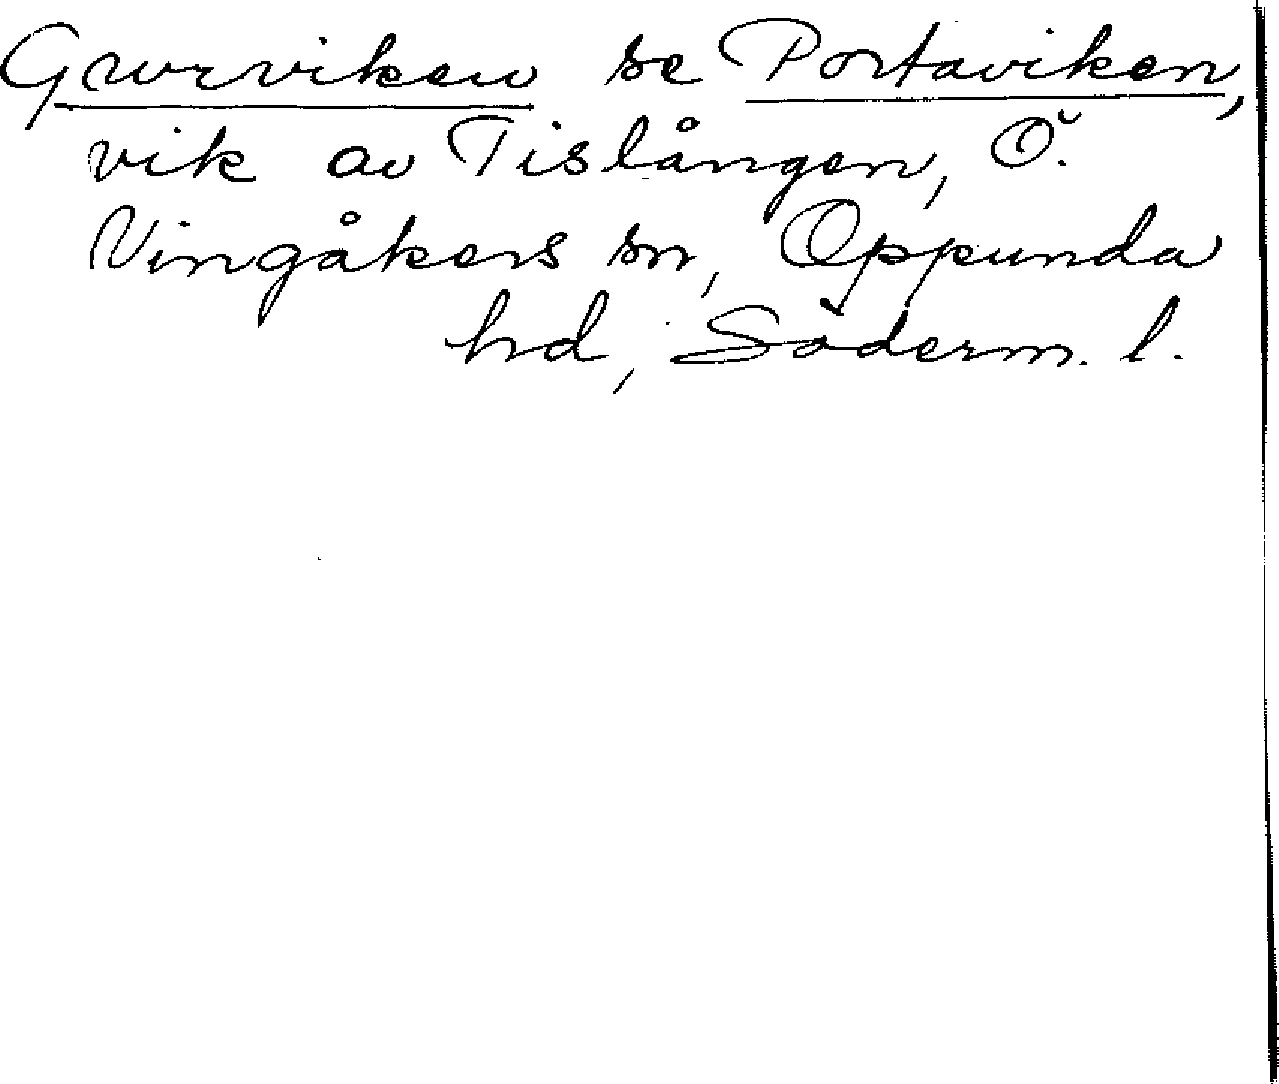 Gruvviken se Portaviken,
vik av Tislången, Ö.
Vingåkers sn, Oppunda
hd, Söderm. l.